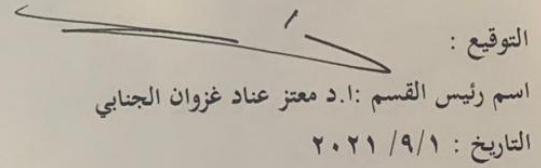 التوقيع :
اسم رئيس القسم :ا.د معتز عناد غزوان الجنابي
التاريخ : ٢٠٢١ /٩/١